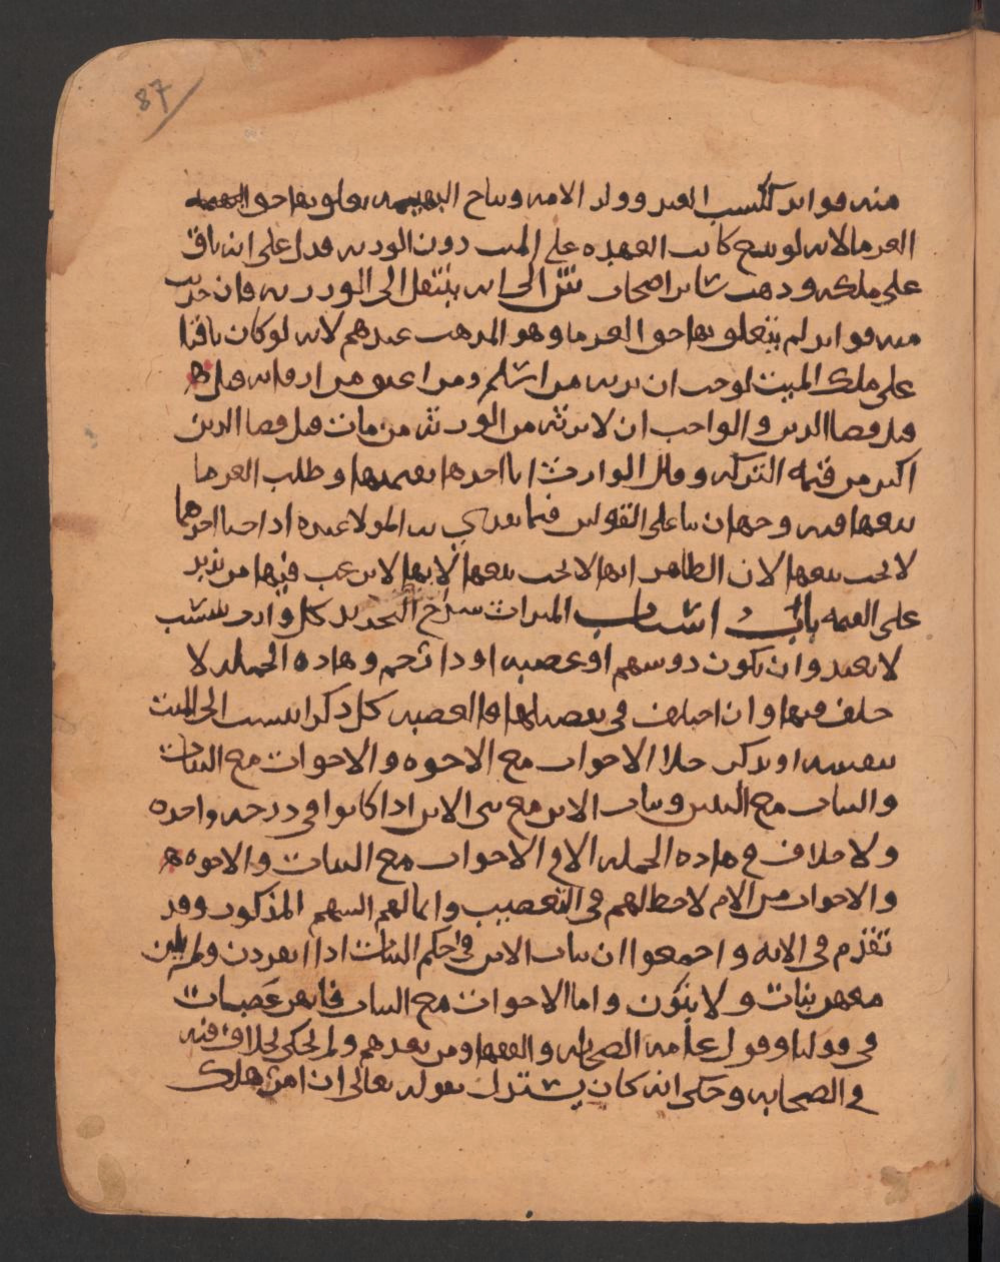 87
منه فوائد ككسب العبد وولد الامه ونتاج البهيمه تعلق بها حق
الغرما لانه لو بيع كانت العهده على الميت دون الورثه فدل على انه باق
على ملكه وذهب سائر اصحاب الى انه ينتقل الى الورثه فان حدثت
منه فوائد لم يتعلق بها حق الغرما وهو المذهب عندهم لانه لو كان باقيا
على ملك الميت لوجب ان يرثه من اسلم ومن اعتق من اقاربه قبل
قبل قضا الدين والواجب ان لا يرثه من الورثه من مات قبل قضا الدين
اكثر من قيمه التركه وقال الوارث انا اخذها بقيمتها وطلب الغرما
بيعها ففيه وجهان بنا على القولين فيما يفدي به المولا عبده اذا جنا احدهما
لا يجب بيعها لان الظاهر انها لا يجب بيعها لانها لا يرغب فيها من يزيد
على القيمه باب اسباب الميراث كل وارث
لا يعدو ان يكون ذو سهم او عصبه او ذا رحم وهاذه الجمله لا
خلف فيها وان اختلف في تفصيلها فالعصبه كل ذكر انتسب الى الميت
بنفسه او بذكر خلا الاخوات مع الاخوه والاخوات مع البنات
والبنات مع البنين وبنات الابن مع بني الابن اذا كانوا في درجه واحده
ولا خلاف في هاذه الجمله الا في الاخوات مع البنات والاخوه
والاخوات من الام لا حظ لهم في التعصيب وانما لهم السهم المذكور وقد
تقدم في الايه واجمعوا ان بنات الابن في حكم البنات اذا انفردن ولم يكن
معهن بنات ولا بنون واما الاخوات مع البنات فانهن عصبات
في قولنا وقول عامه الصحابه والفقها ومن بعدهم ولم يحكى خلاف فيه
في الصحابه وحكي انه كان يستدل بقوله تعالى ان امرؤ هلك